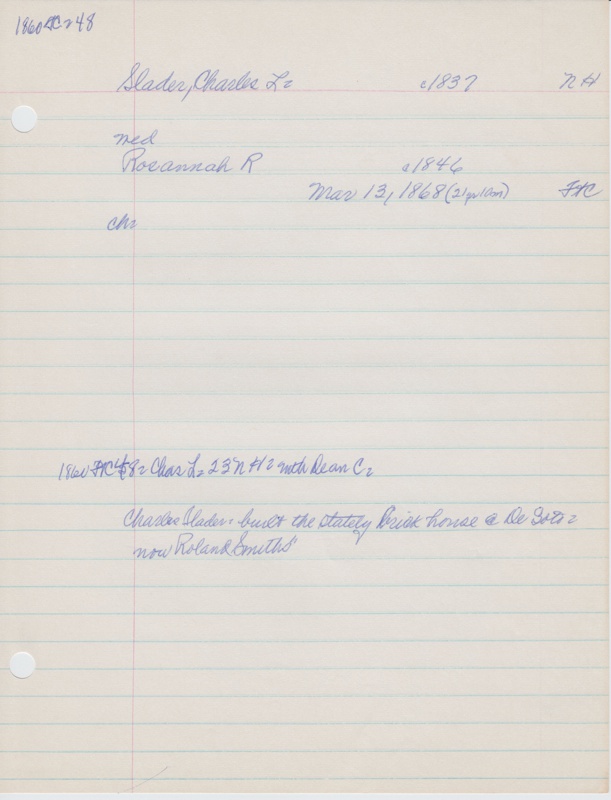 1860 HC-48
Slader, Charles L- c1837 NH
med
Rosannah R c1846
Mar 13, 1868 (21yr10m) FHC
ch-
1860 FHC 48- Chas L- 23 NH- with Dean C-
Charles Slader- built the stately Brick house @ De Soto-
now Roland Smiths"